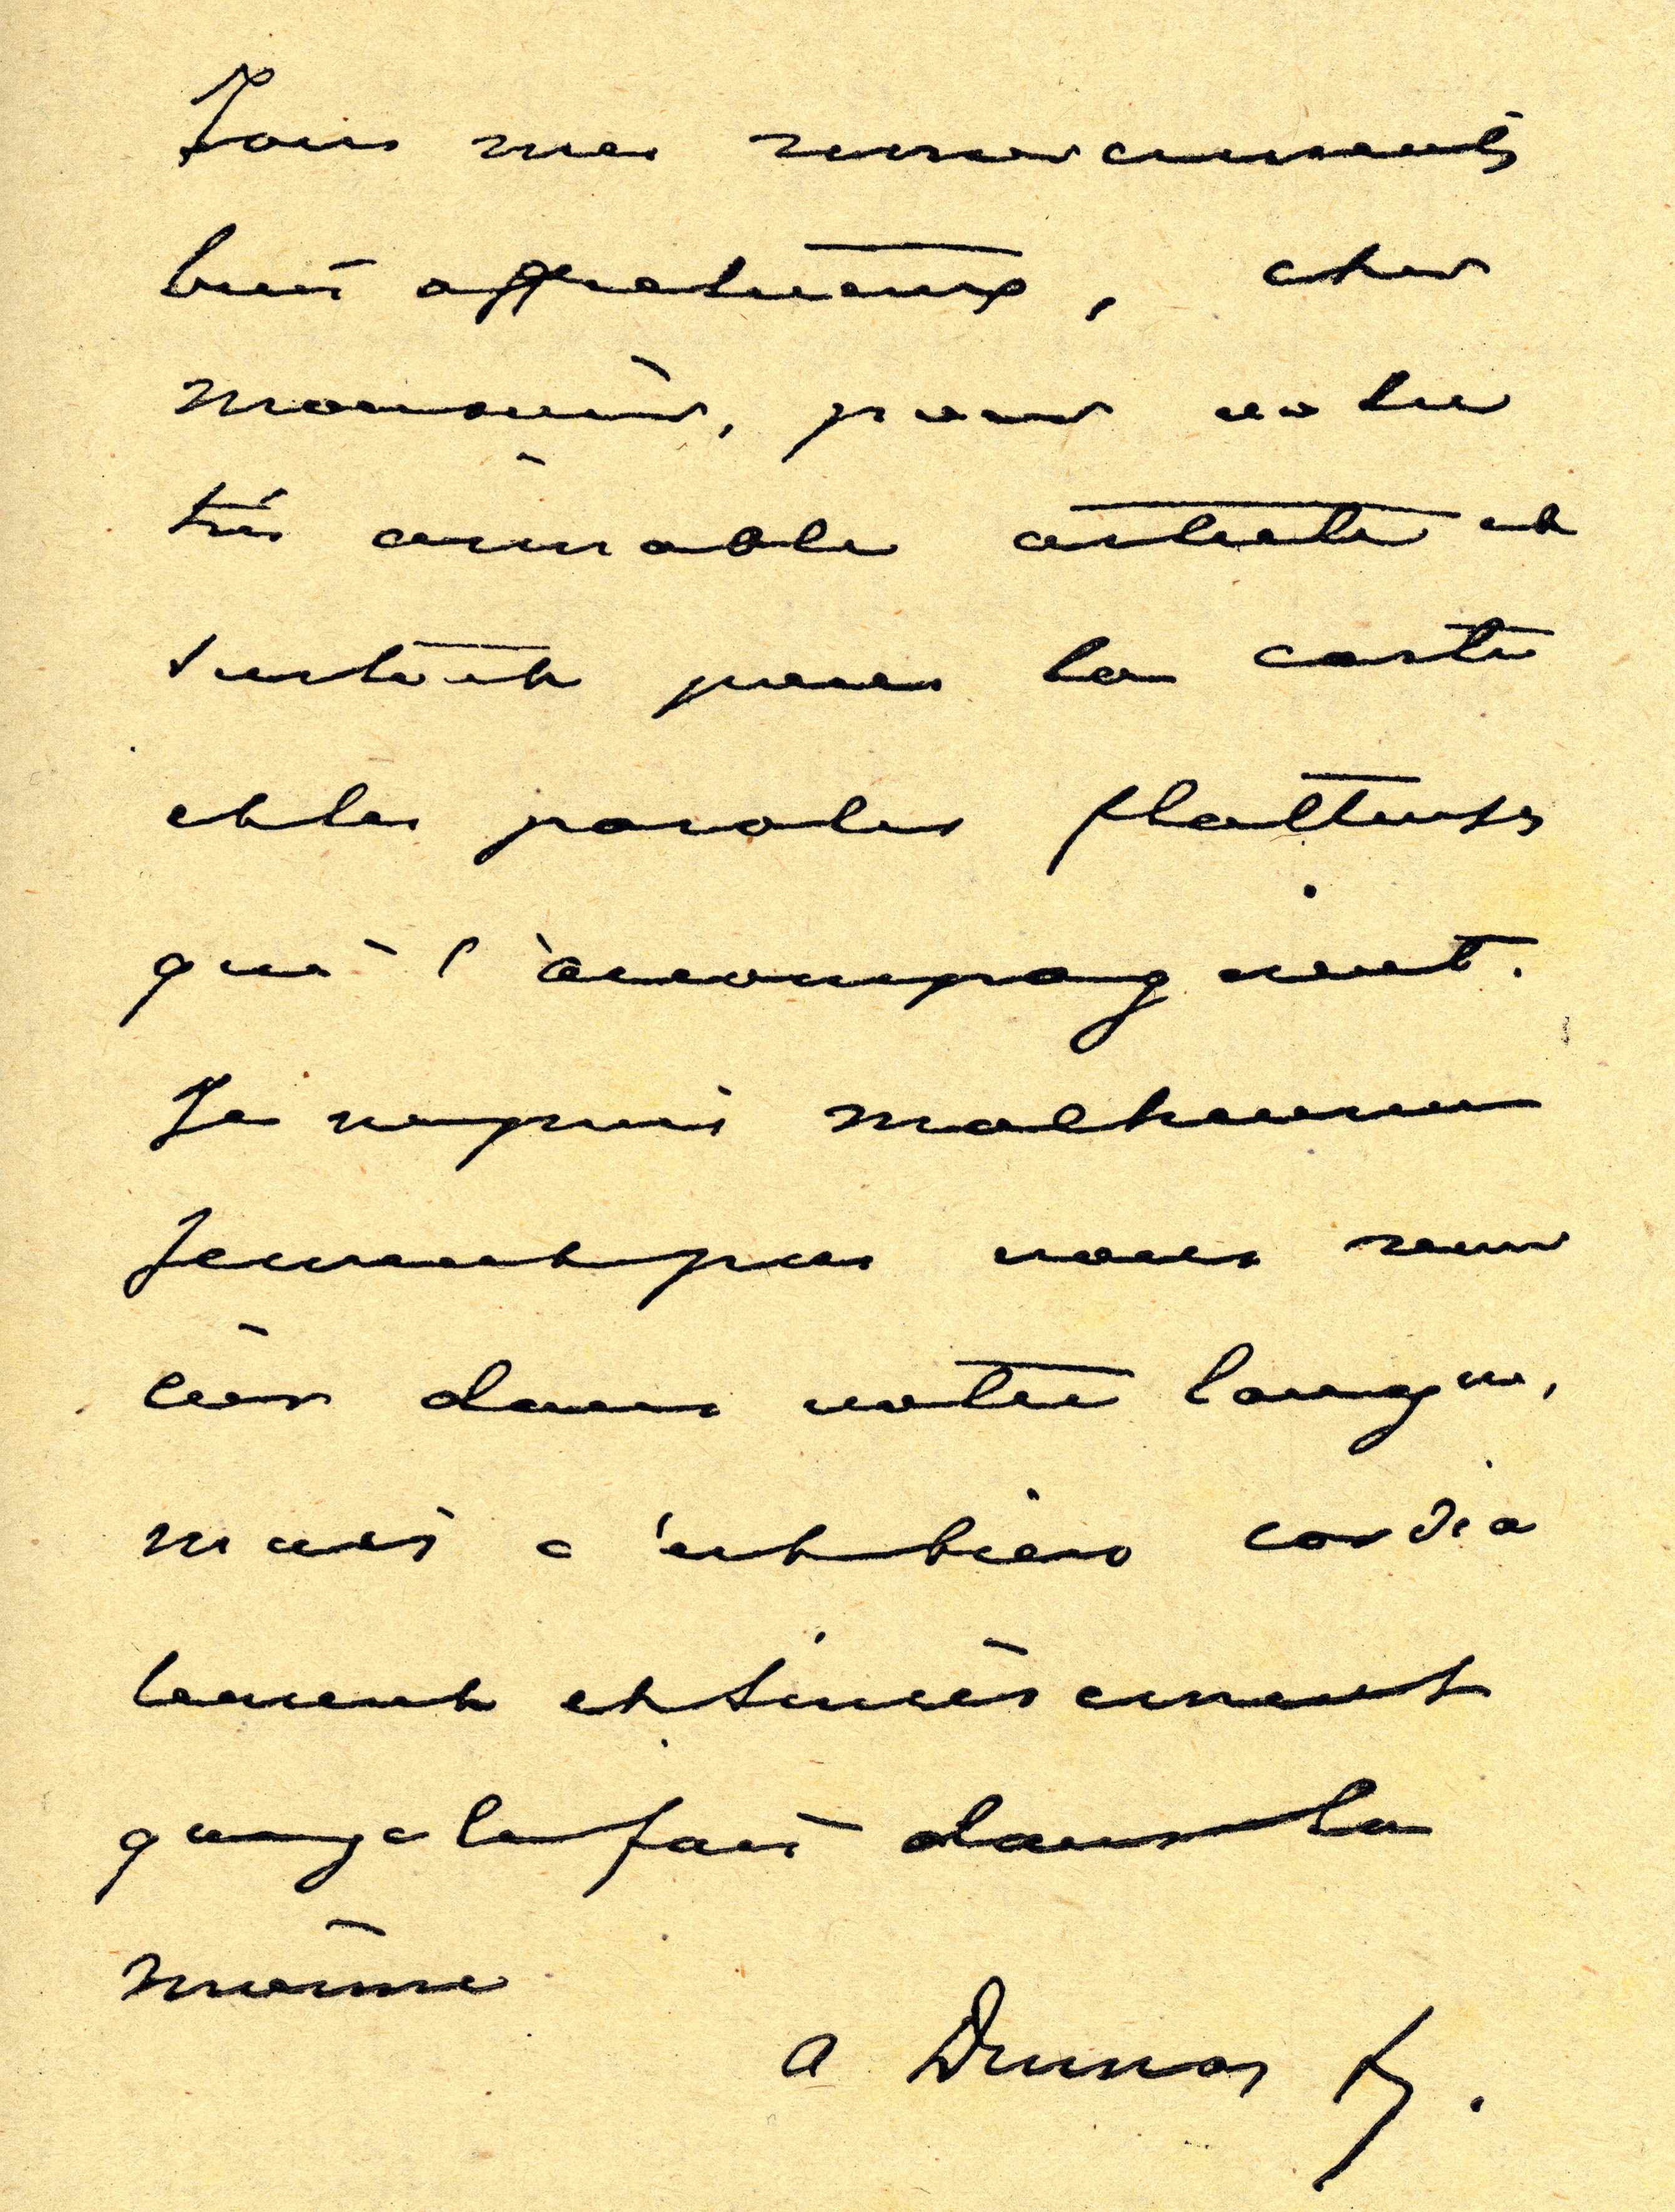 Tous mes remerciements
bien affectueux, cher
Monsieur, pour votre
très aimable article et
surtout pour la carte
et les paroles flatteuses
qui l'accompagnent.
Je ne puis malheureu
sement pas vous remer
cier dans votre langue,
mais c'est bien cordia
lement et sincèrement
que je le fais dans la
mienne
A Dumas f.